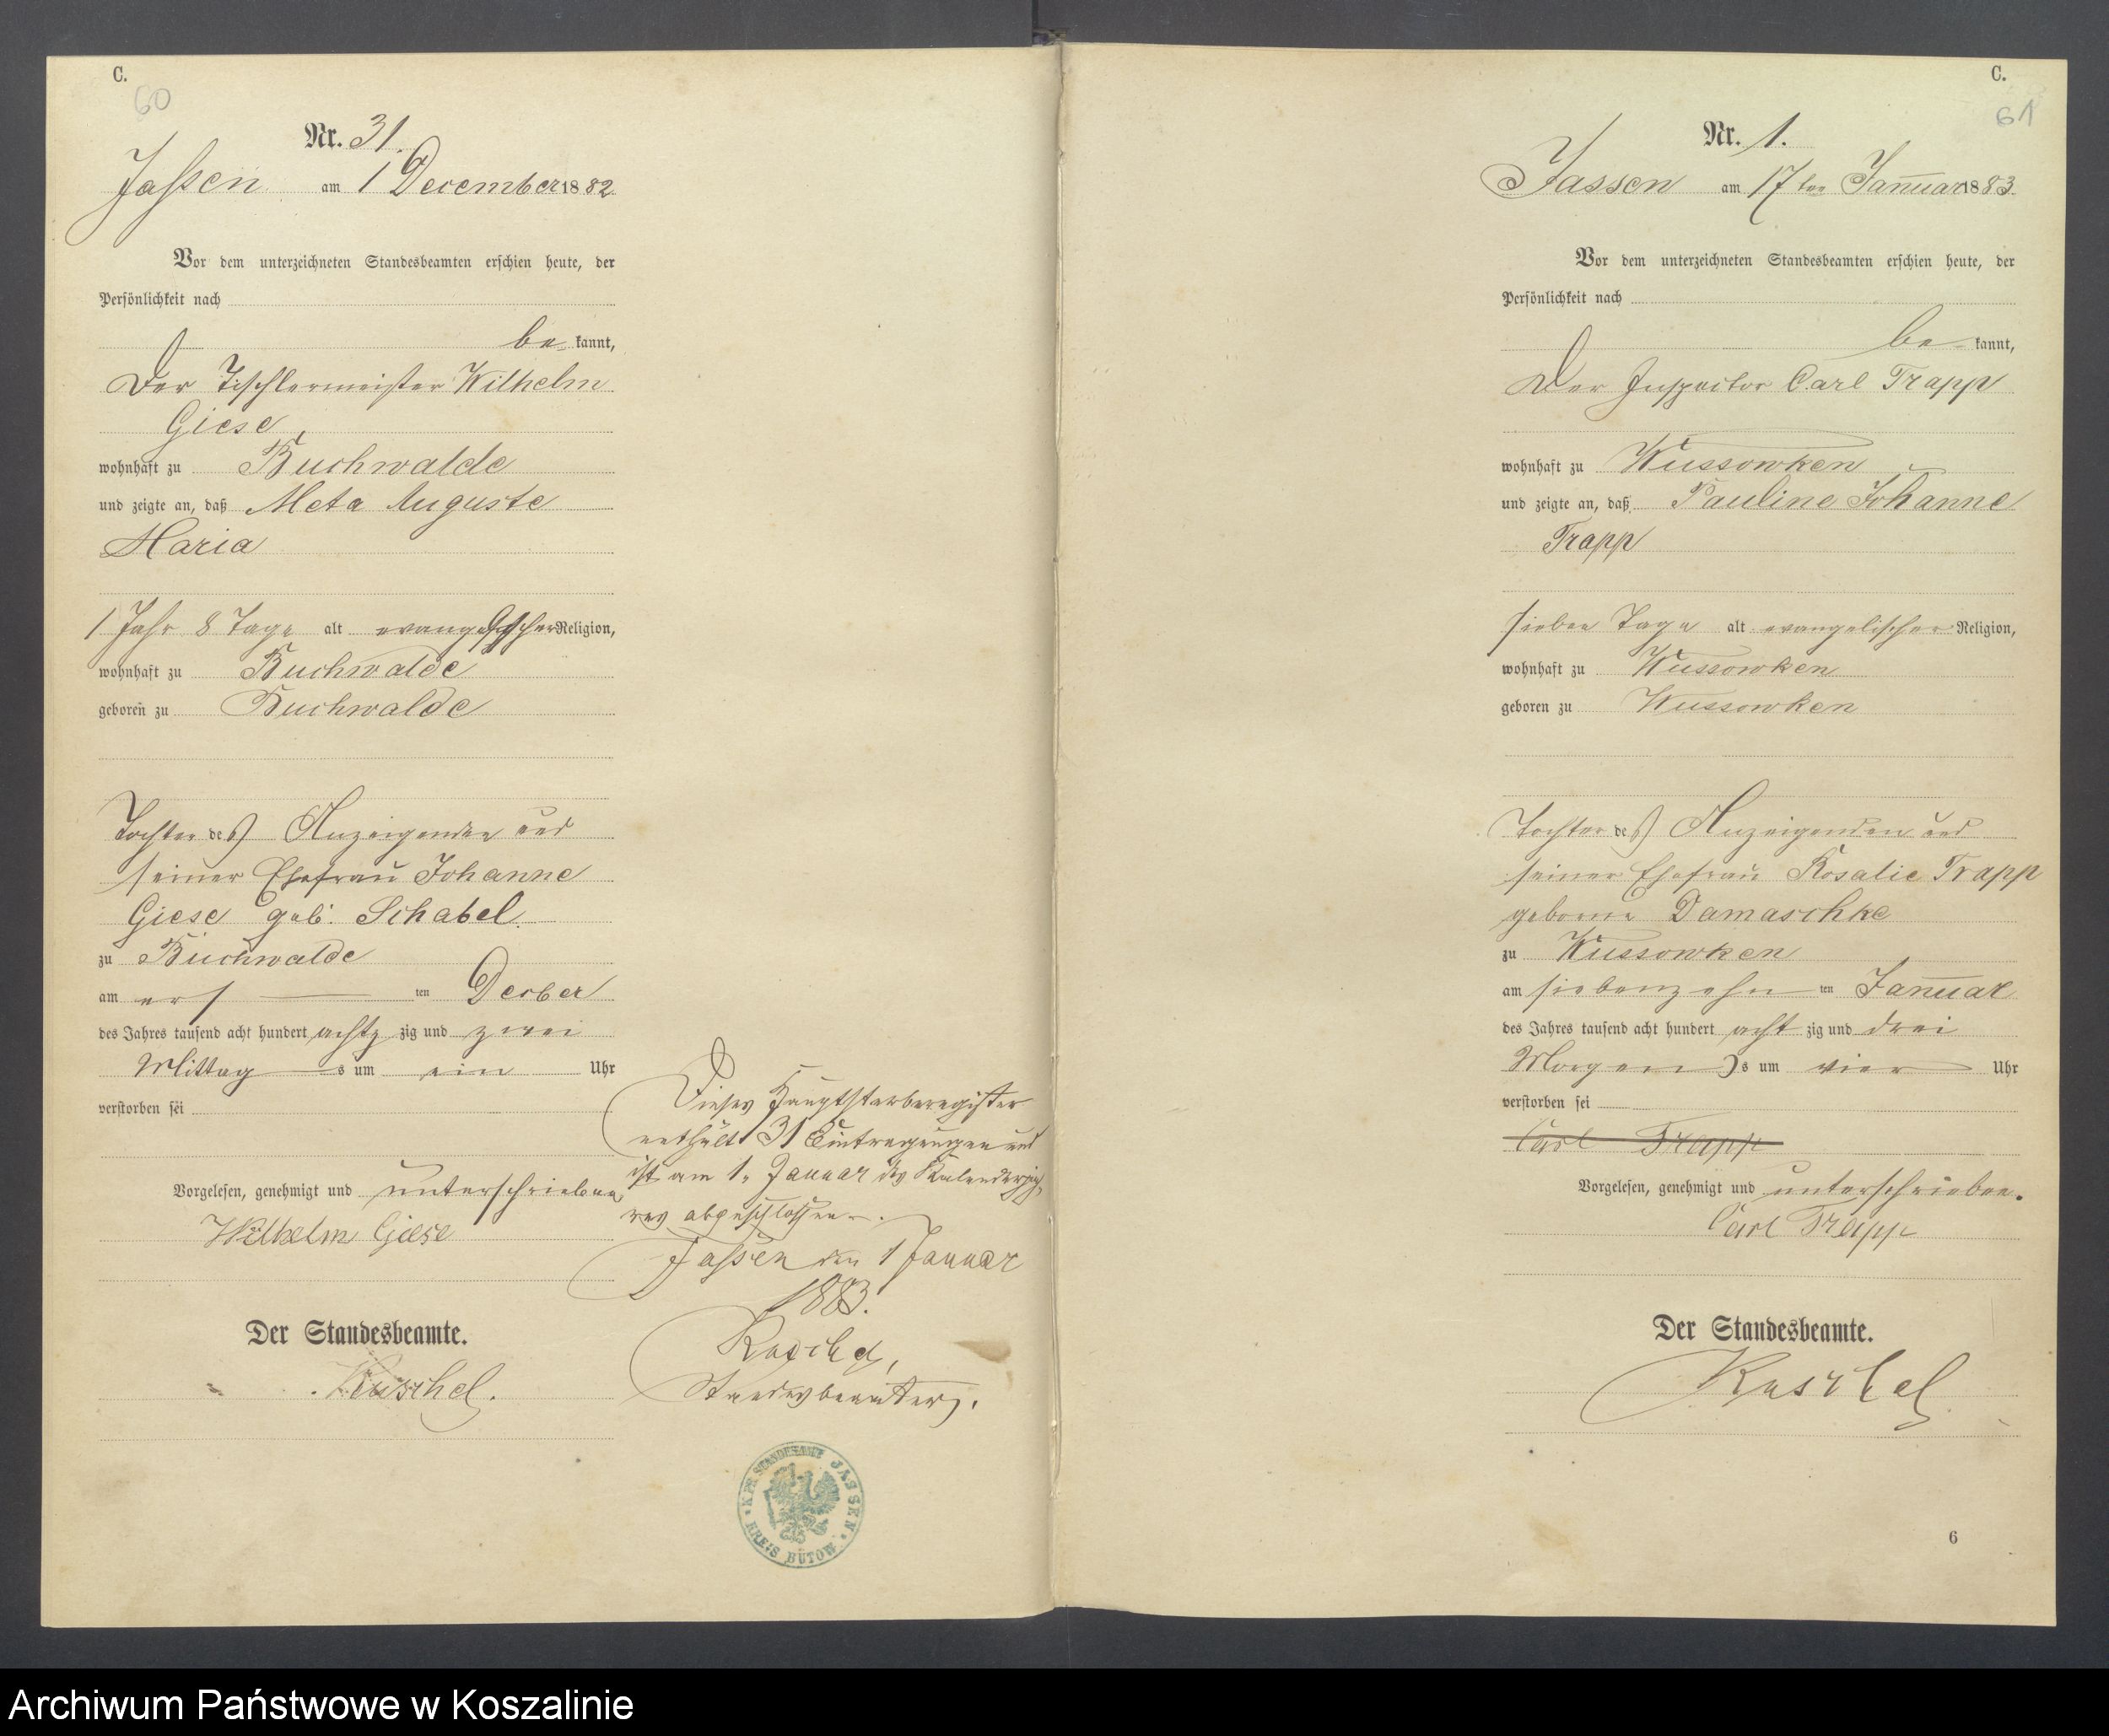 C.
60
Nr. 31.
Jassen am 1 December 1882.
Vor dem unterzeichneten Standesbeamten erschien heute, der
Persönlichkeit nach
be kannt,
Der Tischlermeister Wilhelm
Giese,
wohnhaft zu Buchwalde
und zeigte an, daß Meta Auguste
Maria
1 Jahr 8 Tage alt evangelischer Religion,
wohnhaft zu Buchwalde
geboren zu Buchwalde
Tochter des Anzeigenden und
seiner Ehefrau Johanne
Giese geb. Schabel.
zu Buchwalde
am ers ten Decber
des Jahres tausend acht hundert achtz zig und zwei
Mittag s um ein Uhr
verstorben sei
Vorgelesen, genehmigt und unterschrieben
Wilhelm Giese
Der Standesbeamte.
Kuschel.
Dieses Hauptsterberegister
enthält 31 Eintragungen und
ist am 1. Januar des Kalenderjah-
res abgeschlossen.
Jassen den 1 Januar
1883.
Kuschel,
Standesbeamter.
KPR. STANDESAMT JASSEN
KREIS BÜTOW
C.
61
Nr. 1.
Jassen am 17ten Januar 1883.
Vor dem unterzeichneten Standesbeamten erschien heute, der
Persönlichkeit nach
be kannt,
Der Inspector Carl Trapp
wohnhaft zu Wussowken
und zeigte an, daß Pauline Johanne
Trapp
sieben Tage alt evangelischer Religion,
wohnhaft zu Wussowken
geboren zu Wussowken
Tochter des Anzeigenden und
seiner Ehefrau Rosalie Trapp
geborne Damaschke
zu Wussowken
am siebenzehn ten Januar
des Jahres tausend acht hundert acht zig und drei
Morgen s um vier Uhr
verstorben sei
Carl Trapp
Vorgelesen, genehmigt und unterschrieben.
Carl Trapp
Der Standesbeamte.
Kuschel
6
Archiwum Państwowe w Koszalinie